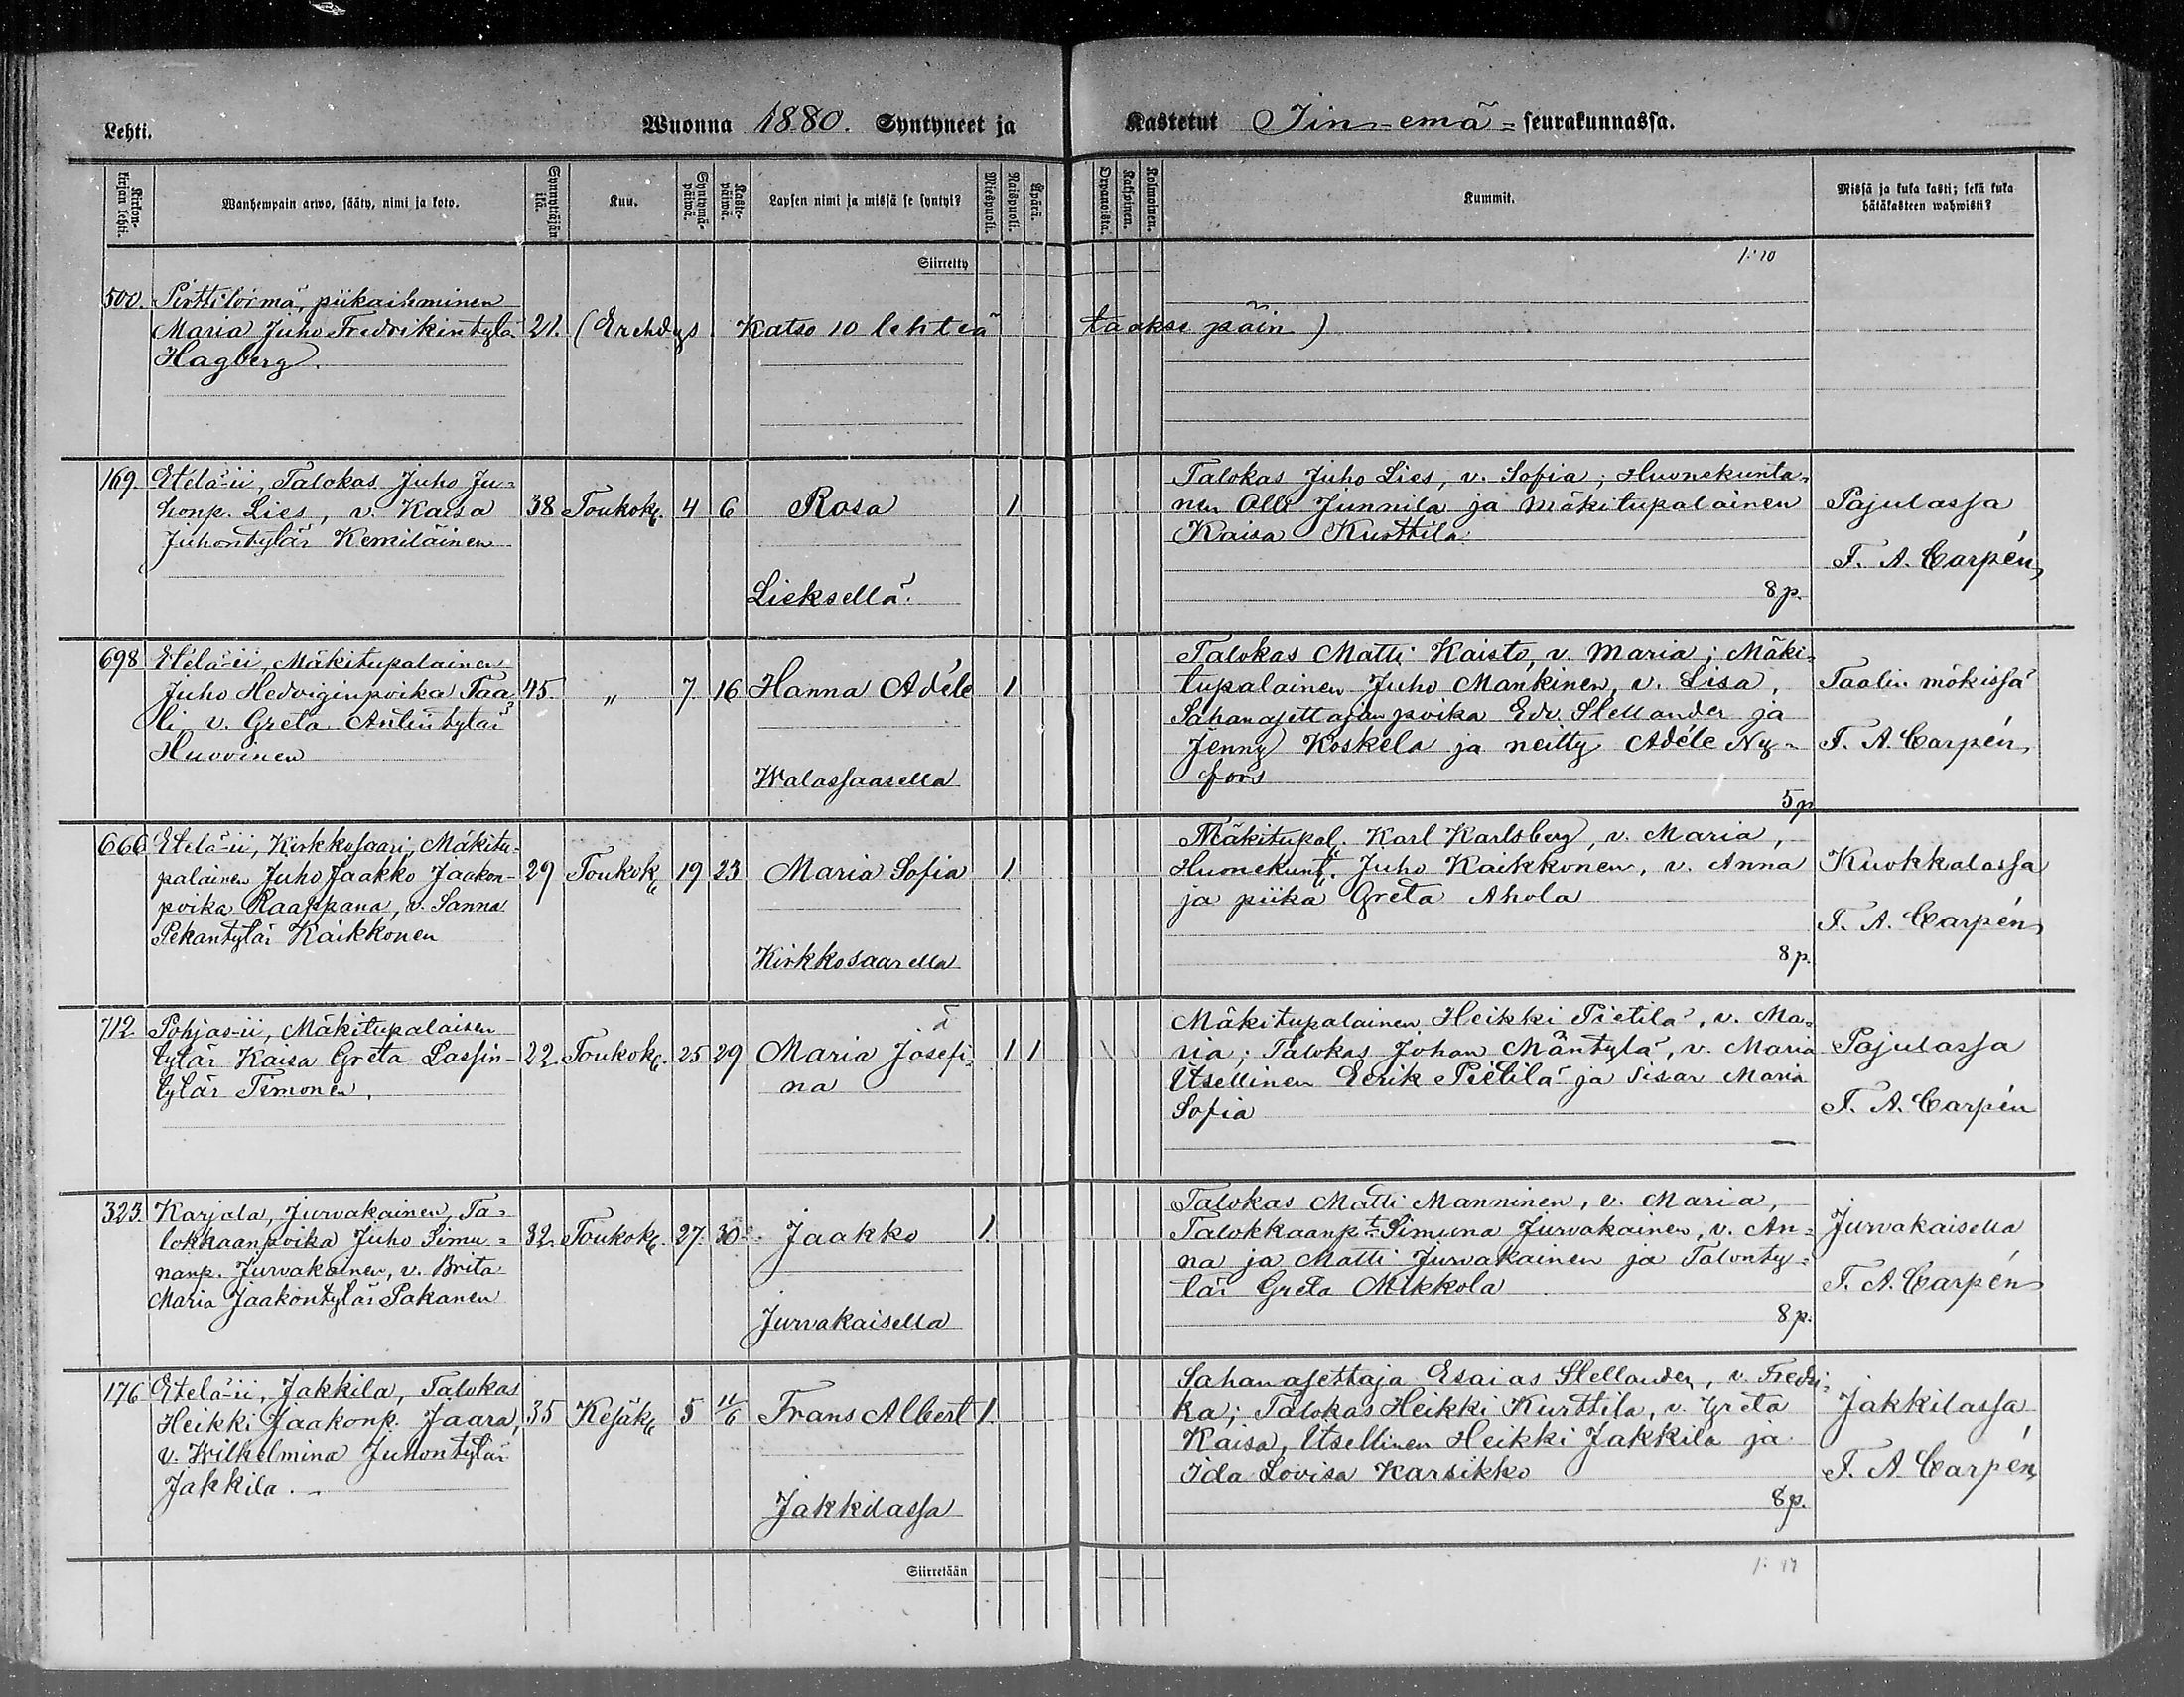 Lehti.
Wuonna 1880. Syntyneet ja
Kastetut Iin-emä-seurakunnassa.
Kirkon-kirjan lehti.
Wanhempain arwo, sääty, nimi ja koto.
Synnyttäjän ikä.
Kuu.
Syntymä-päiwä.
Kaste-päiwä.
Lapsen nimi ja missä se syntyi?
Miespuoli.
Naispuoli.
Äpärä.
Kaksoinen.
Kolmoinen.
Kummit.
Missä ja kuka kasti; sekä kuka hätäkasteen wahwisti?
Siirretty
1:10
500. Pirttitörmä, piikaihminen
Maria Juho Fredrikintylä 21. (Erehdys Katso 10 lehteä taakse päin)
Hagberg.
169. Etelä-ii, Talokas Juho Ju-
honp. Lies, v. Kaisa 38 Toukok. 4 6 Rosa 1
Juhontylär Kemiläinen
Lieksellä.
Talokas Juho Lies, v. Sofia; Huonekunta-
nen Olli Jinnilä ja mäkitupalainen
Kaisa Kurttila.
8 p.
Pajulassa
F. A. Carpén,
698 Etelä-ii, Mäkitupalainen
Juho Hedviginpoika Taa- 45. „ 7 16 Hanna Adéle 1
li, v. Greta Antintylär
Huovinen
Walassaarella
Talokas Matti Kaisto, v. Maria; Mäki-
tupalainen Juho Mankinen, v. Lisa,
Sahanasettajanpoika Edv. Stellander ja
Jenny Koskela ja neitty Adéle Ny-
fors
5 p
Taalin mökissä
F. A. Carpén,
666 Etelä-ii, Kirkkosaari, Mäkitu-
palainen Juho Jaakko Jaakon- 29 Toukok. 19 23 Maria Sofia 1
poika Raappana, v. Sanna
Pekantylär Kaikkonen
Kirkkosaarella
Mäkitupal. Karl Karlsberg, v. Maria,
Huonekunt. Juho Kaikkonen, v. Anna
ja piika Greta Ahola
8 p.
Kuokkalassa
F. A. Carpén,
712. Pohjas-ii, Mäkitupalaisen
tylär Kaisa Greta Lassin- 22. Toukok. 25 29 Maria Josefi- 1 1
tylär Timonen.
na
Mäkitupalainen Heikki Pietilä, v. Ma-
ria; Talokas Johan Mäntylä, v. Maria
Itsellinen Eerik Pietilä ja sisar Maria
Sofia
Pajulassa
F. A. Carpén
323. Karjala, Jurvakainen, Ta-
lokkaanpoika Juho Simu- 32. Toukok. 27. 30 Jaakko 1.
nanp. Jurvakainen, v. Brita
Maria Jaakontylär Pakanen
Jurvakaisella
Talokas Matti Manninen, v. Maria,
Talokkaanpt. Simuna Jurvakainen, v. An-
na ja Matti Jurvakainen ja Talonty-
lär Greta Mikkola
8 p.
Jurvakaisella
F. A. Carpén
176 Etelä-ii, Jakkila, Talokas
Heikki Jaakonp. Jaara, 35 Kesäk. 5 11/6 Frans Albert 1.
v. Wilhelmina Juhontylär
Jakkila.
Jakkilassa
Sahanasettaja Esaias Stellander, v. Fredri-
ka; Talokas Heikki Kurttila, v. Greta
Kaisa, Itsellinen Heikki Jakkila ja
Ida Lovisa Karsikko
8 p.
Jakkilassa
F. A. Carpén,
Siirretään